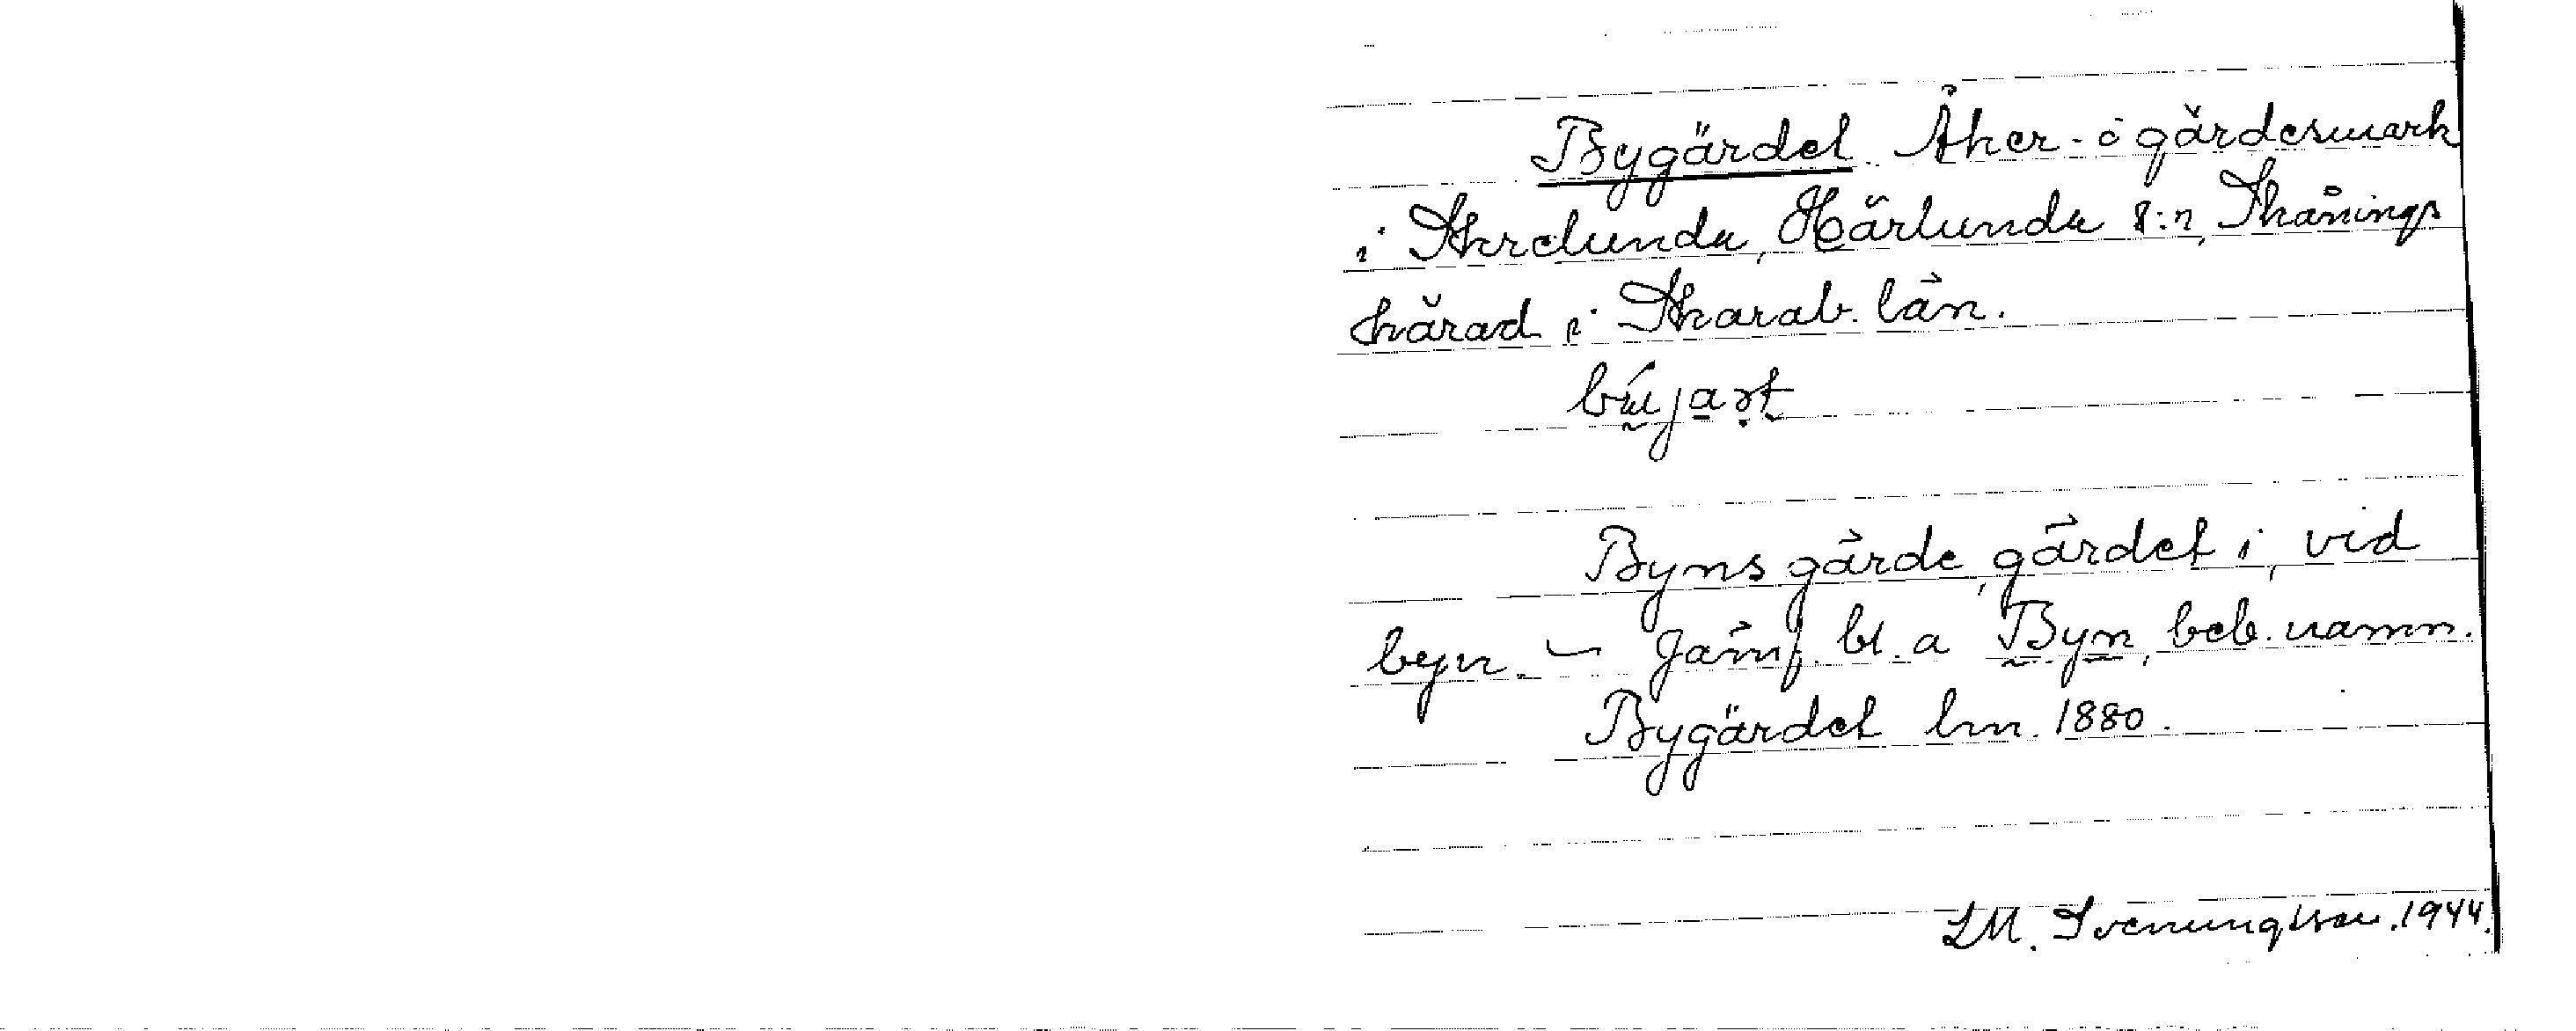 Bygärdet. Åker- o gärdesmark
i Skrelunda, Härlunda s:n, Skånings
härad i Skarab. län.
bújaṛt
Byns gärde, gärdet i, vid
byn. – Jämf. bl. a Byn, beb. namn.
Bygärdet lm. 1880.
LM. Svenungsson. 1944.